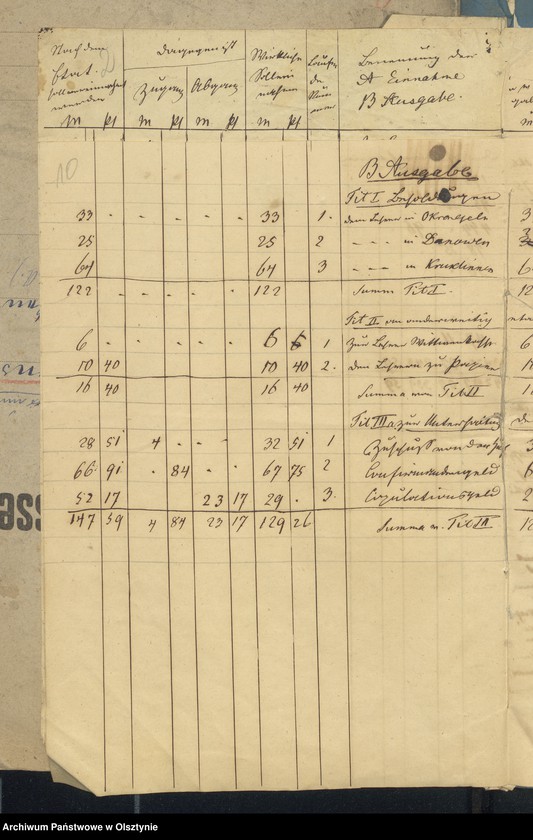 Nach dem Etat
dagegen ist
Zugang Abgang
Wirkliche Solleinnahme
Laufende Nummer
Benennung der
A Einnahme
B Ausgabe.
M Pf M Pf M Pf M Pf
10
B Ausgabe
Tit I Besoldungen
33 - - - - - 33 1. dem Lehrer in Okrongeln
25 25 2 - - - in Danowen
64 64 3 - - - in Kruklinnen
122 - - - - - 122 Summa Tit I.
Tit II an anderweitig
6 - - - - - 6 1 zur Lehrer Wittwenkasse
10 40 10 40 2. den Lehrern zu
16 40 16 40 Summa von Tit II
Tit III zur Unterhaltung
28 51 4 - - - 32 51 1 Zuschuss von der
66 91 . 84 - - 67 75 2 Confirmandengeld
52 17 23 17 29 . 3. Copulationsgeld
147 59 4 84 23 17 129 26 Summa v. Tit III
Archiwum Państwowe w Olsztynie